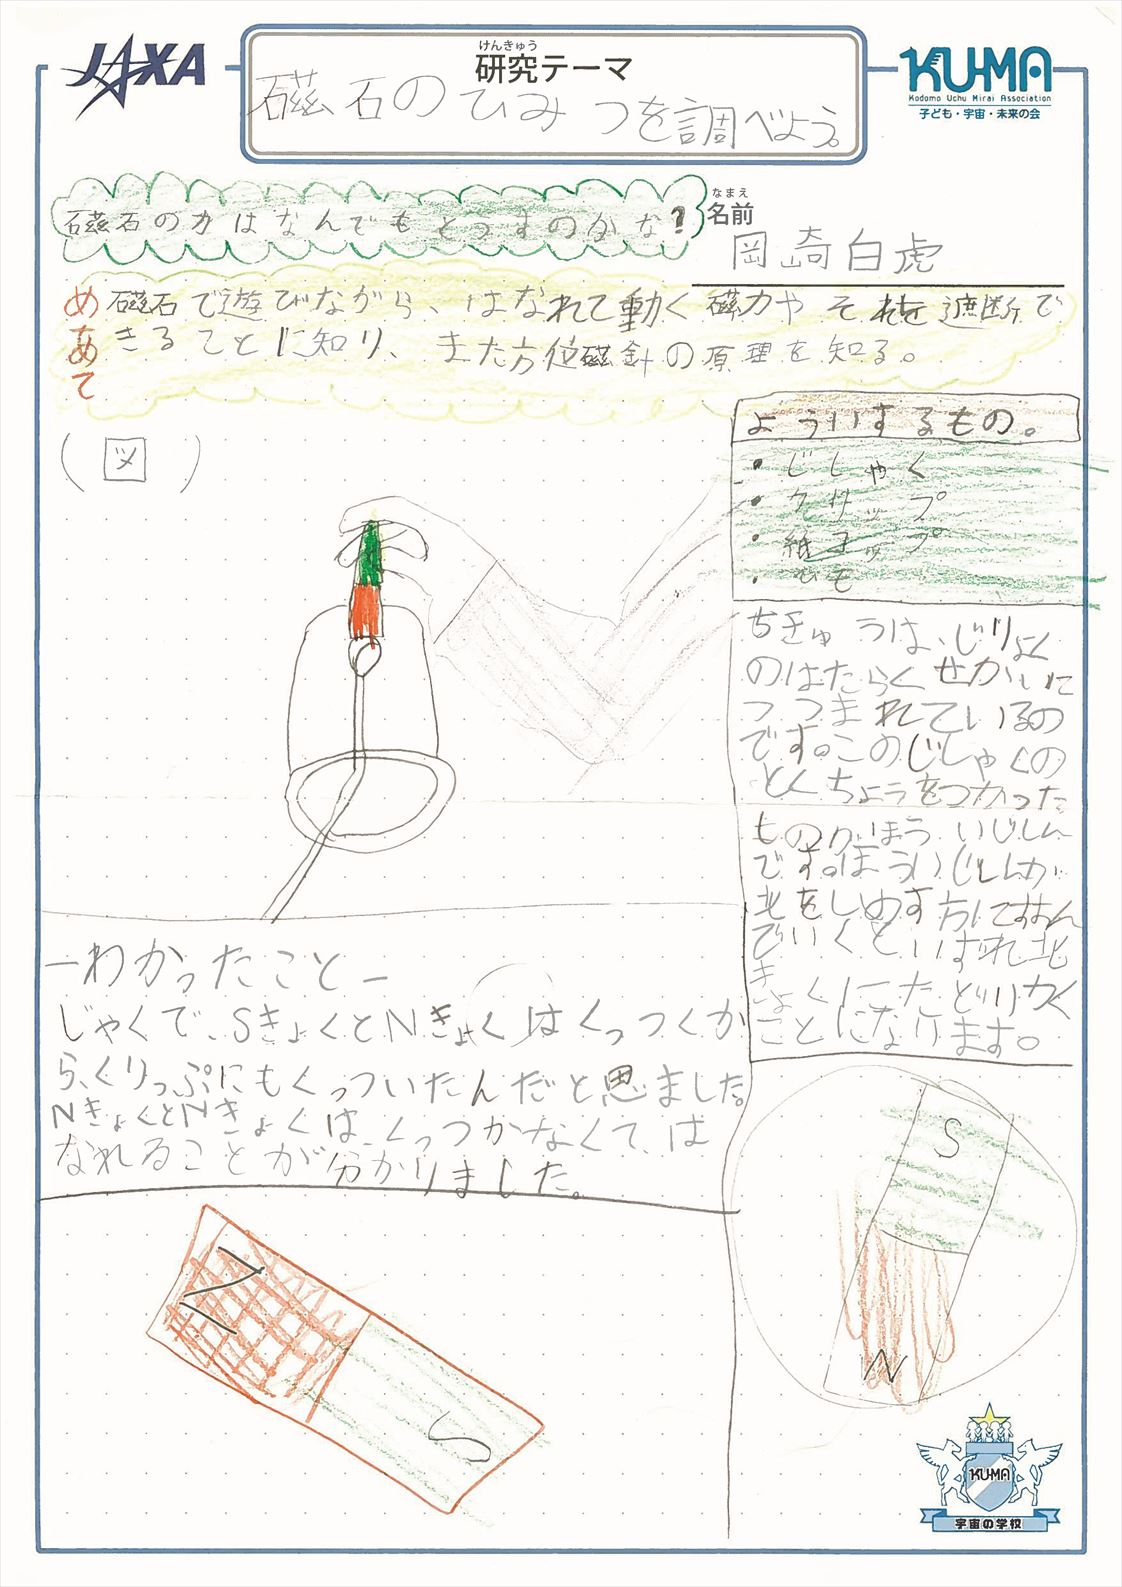 JAXA
けんきゅう
研究テーマ
磁石のひみつを調べよう。
KU-MA
Kodomo Uchu Mirai Association
子ども・宇宙・未来の会
磁石の力はなんでもとうすのかな?
なまえ
名前
岡崎白虎
めあて
磁石で遊びながら、はなれて動く磁力やそれを遮断で
きることに知り、また方位磁針の原理を知る。
(図)
よういするもの。
・じしゃく
・クリップ
・紙コップ
・ひも
ちきゅうは、じりょく
のはたらくせかいに
つつまれているの
です。このじしゃくの
とくちょうをつかった
ものがほういじしん
です。ほういじしんが
北をしめす方にすすん
でいくといずれ北
きょくにたどりつく
ことになります。
ーわかったことー
じゃくで、SきょくとNきょくはくっつくか
ら、くりっぷにもくっついたんだと思ました。
NきょくとNきょくは、くっつかなくて、は
なれることが分かりました。
S
N
N
S
KU-MA
宇宙の学校